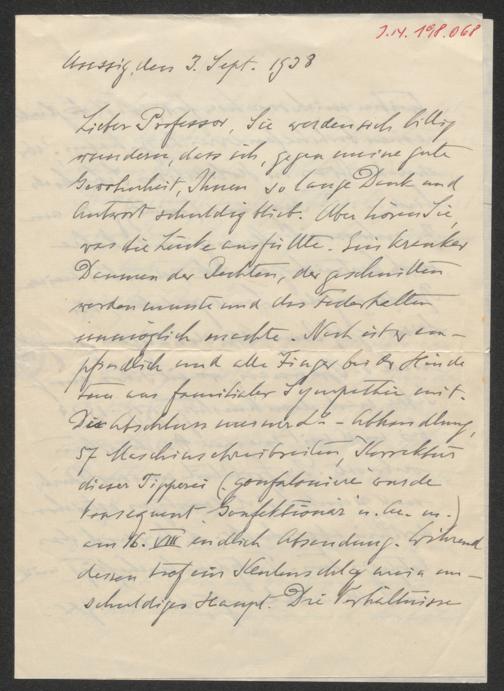 J.N. 198.068
Aussig, den 3. Sept. 1938
Lieber Professor, Sie werden sich billig
wundern, dass ich, gegen meine gute
Gewohnheit, Ihnen so lange Dank und
Antwort schuldig blieb. Aber hören Sie,
was die Lücke ausfüllte. Ein kranker
Daumen der Rechten, der geschnitten
werden musste und das Federhalten
unmöglich machte. Noch ist er em-
pfindlich und alle Finger beider Hände
tun aus familialer Sympathie mit.
Die Abschluss meiner - Abhandlung,
57 Maschinschreibseiten, Korrektur
dieser Tipperei (gonfaloniere wurde
konsequent "Confektionär" u. a. m.)
am 16. VIII endlich Absendung. Während
dessen traf ein Keulenschlag mein un-
schuldiges Haupt. Die Verhältnisse